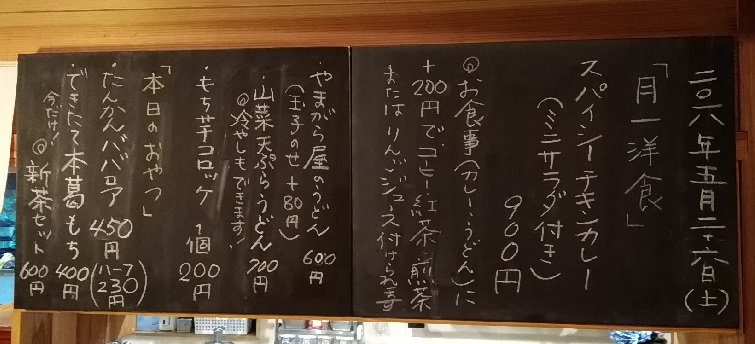 二〇一八年五月二十六日(土)
「月一洋食」
スパイシーチキンカレー
(ミニサラダ付き)
900円
◎お食事(カレー・うどん)に
+200円でコーヒー・紅茶・煎茶
またはりんごジュース付けられます
・やまがら屋のうどん 600円
(玉子のせ+80円)
・山菜天ぷらうどん 700円
◎冷やしもできます!
・もち芋コロッケ 1個 200円
「本日のおやつ」
・たんかんババロア 450円
(ハーフ 230円)
・できたて本葛もち 400円
今だけ!
◎新茶セット 600円